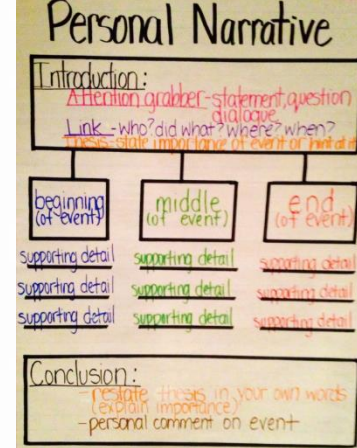 Personal Narrative
Introduction:
Attention grabber-statement, question
dialogue
Link-who? did what? where? when?
Thesis-state importance of event or hint at it
beginning
(of event)
middle
(of event)
end
(of event)
supporting detail
supporting detail
supporting detail
supporting detail
supporting detail
supporting detail
supporting detail
supporting detail
supporting detail
Conclusion:
-restate thesis in your own words
(explain importance)
-personal comment on event